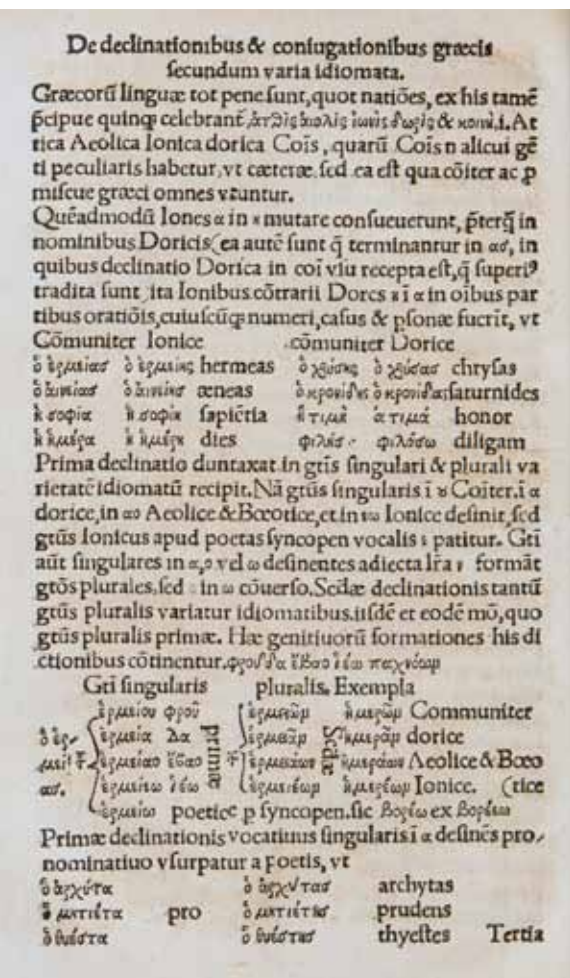 De declinationibus & coniugationibus græcis
secundum varia idiomata.
Græcorũ linguæ tot pene sunt, quot natiões, ex his tamẽ
p̃cipue quinqꝫ celebrant̃, ἀτθὶς αἰολὶς ἰωνὶς δωρὶς & κοινὴ .i. At
tica Aeolica Ionica dorica Cois, quarũ Cois n̄ alicui gẽ
ti peculiaris habetur, vt cæteræ, sed ea est qua cõiter ac ꝓ
miscue græci omnes vtuntur.
Quẽadmodũ Iones α in κ mutare consueuerunt, p̃terq̃ in
nominibus Doricis (ea autẽ sunt q̃ terminantur in ασ, in
quibus declinatio Dorica in coĩ vsu recepta est, q̃ superiꝰ
tradita sunt, ita Ionibus cõtrarii Dores κ ĩ α in oĩbus par
tibus oratiõis, cuiuscũqꝫ numeri, casus & ꝑsonæ fuerĩt, vt
Cõmuniter Ionice cõmuniter Dorice
ὁ ἑρμείασ ὁ ἑρμείης hermeas ὁ χρύσης ὁ χρύσασ chrysas
ὁ αἰνείασ ὁ αἰνείησ æneas ὁ κρονίδης ὁ κρονίδας saturnides
ἡ σοφία ἡ σοφίη sapiẽtia ἡ τιμὴ ἁ τιμά honor
ἡ ἡμέρα ἡ ἡμέρη dies φιλήσω φιλάσω diligam
Prima declinatio duntaxat in gtĩs singulari & plurali va
rietatẽ idiomatũ recipit. Nã gtũs singularis ĩ ȣ Cõiter. ĩ α
dorice, in αο Aeolice & Bœotice, et in εω Ionice desinit, sed
gtũs Ionicus apud poetas syncopen vocalis ε patitur. Gtĩ
aũt singulares in α, ο vel ω desinentes adiecta lr̃a ν formãt
gtõs plurales, sed ο in ω cõuerso. Scd̃æ declinationis tantũ
gtũs pluralis variatur idiomatibus. iisdẽ et eodẽ mõ, quo
gtũs pluralis primæ. Hæ genitiuorũ formationes his di
ctionibus cõtinentur.
Gtĩ singularis pluralis. Exempla
ἑρμείου φροῦ ἑρμειῶν ἡμερῶν Communiter
ὁ ἑρ- ἑρμεία δα primæ ἑρμειᾶν ἡμερᾶν dorice
μεί- ἑρμείαο ἑρμειάων ἡμεράων Aeolice & Bœo
ασ. ἑρμείεω ἑρμειέων ἡμερέων Ionice. (tice
ἑρμείω poetice ꝑ syncopen. sic βορέω ex βορέεω
Primæ declinationis vocatiuus singularis ĩ α desinẽs pro
nominatiuo vsurpatur a poetis, vt
ὁ ἀρχύτα ὁ ἀρχύτασ archytas
ὁ μητιέτα pro ὁ μητιέτησ prudens
ὁ θυέστα ὁ θυέστησ thyestes Tertia